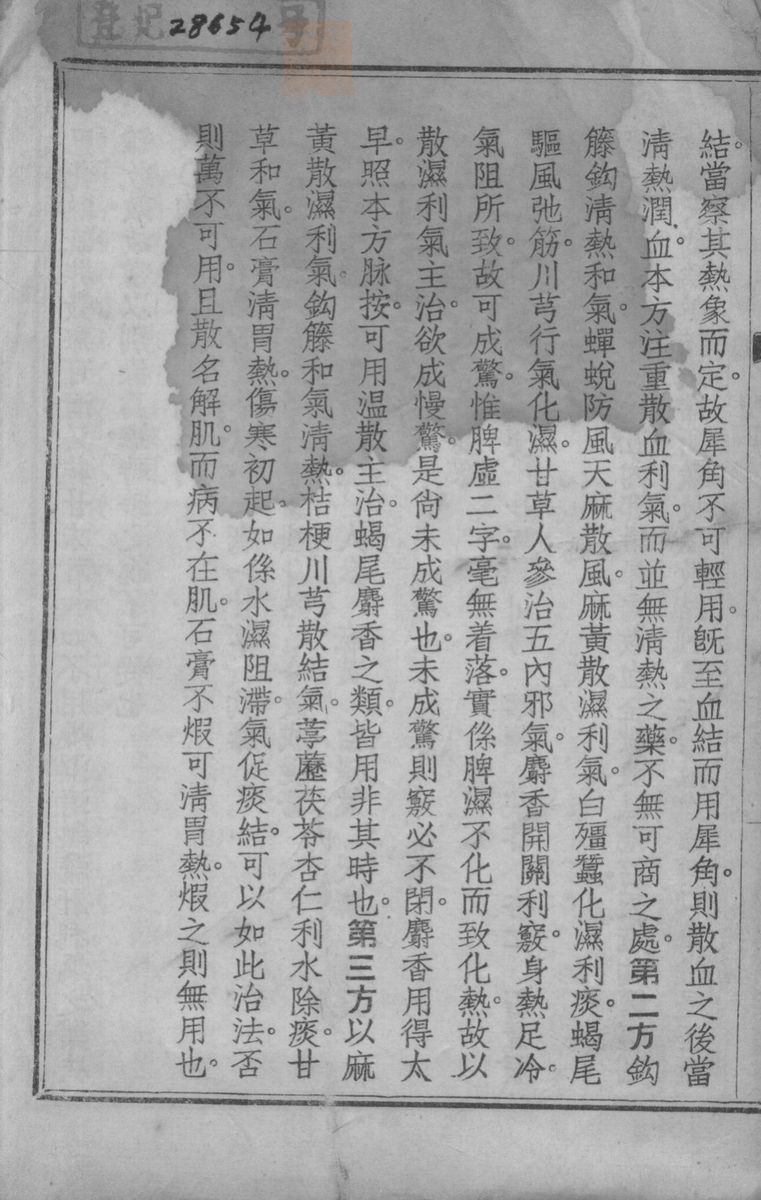 登記 28654 号
結當察其熱象而定。故犀角不可輕用。旣至血結而用犀角。則散血之後當
淸熱潤血。本方注重散血利氣。而並無淸熱之藥。不無可商之處。第二方鈎
籐鈎淸熱和氣。蟬蛻防風天麻散風。麻黃散濕利氣。白殭蠶化濕利痰。蝎尾
驅風弛筋。川芎行氣化濕。甘草人參治五內邪氣。麝香開關利竅。身熱足冷。
氣阻所致。故可成驚。惟脾虛二字。毫無着落。實係脾濕不化而致化熱。故以
散濕利氣主治。欲成慢驚。是尙未成驚也。未成驚則竅必不閉。麝香用得太
早。照本方脉按。可用温散主治。蝎尾麝香之類。皆用非其時也。第三方以麻
黃散濕利氣。鈎籐和氣淸熱。桔梗川芎散結氣。葶藶茯苓杏仁利水除痰。甘
草和氣。石膏淸胃熱。傷寒初起。如係水濕阻滯。氣促痰結。可以如此治法。否
則萬不可用。且散名解肌。而病不在肌。石膏不煆可淸胃熱。煆之則無用也。